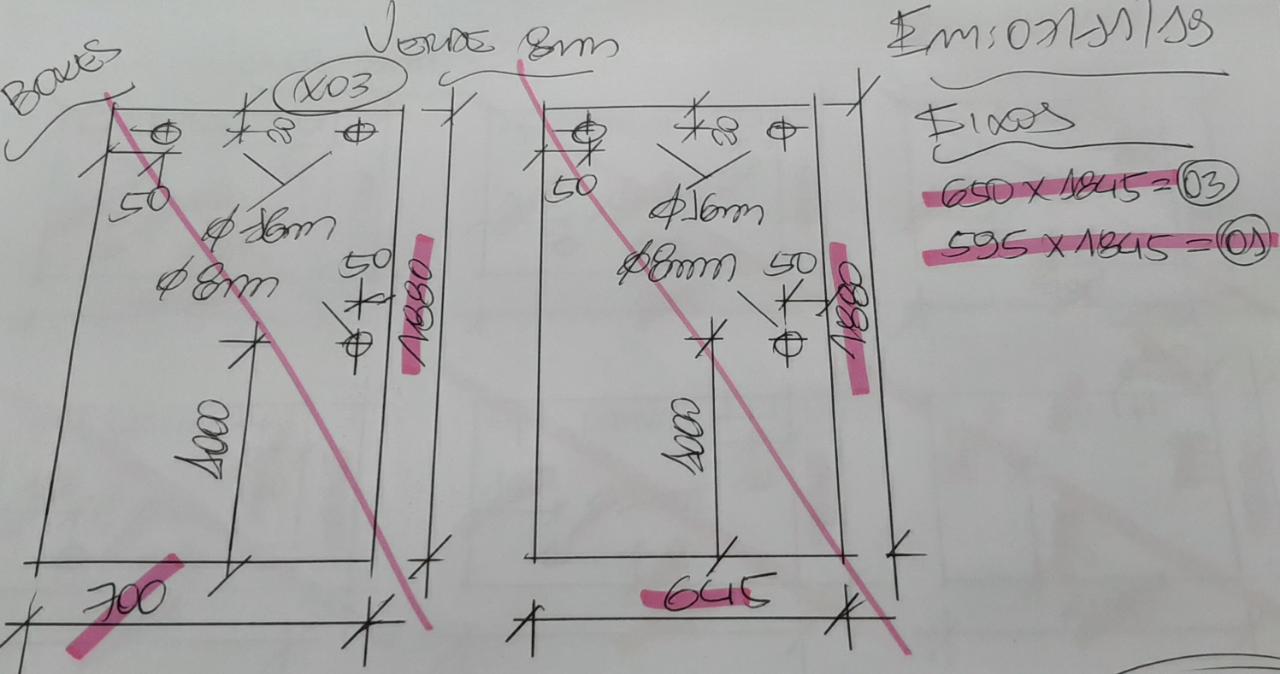 BOXES
VERDE 8mm
Em: 07/11/19
X03
Fixos
650 x 1845 = 03
595 x 1845 = 01
50
Φ16mm
Φ8mm
50
1880
1000
700
50
Φ16mm
Φ8mm
50
1880
1000
645